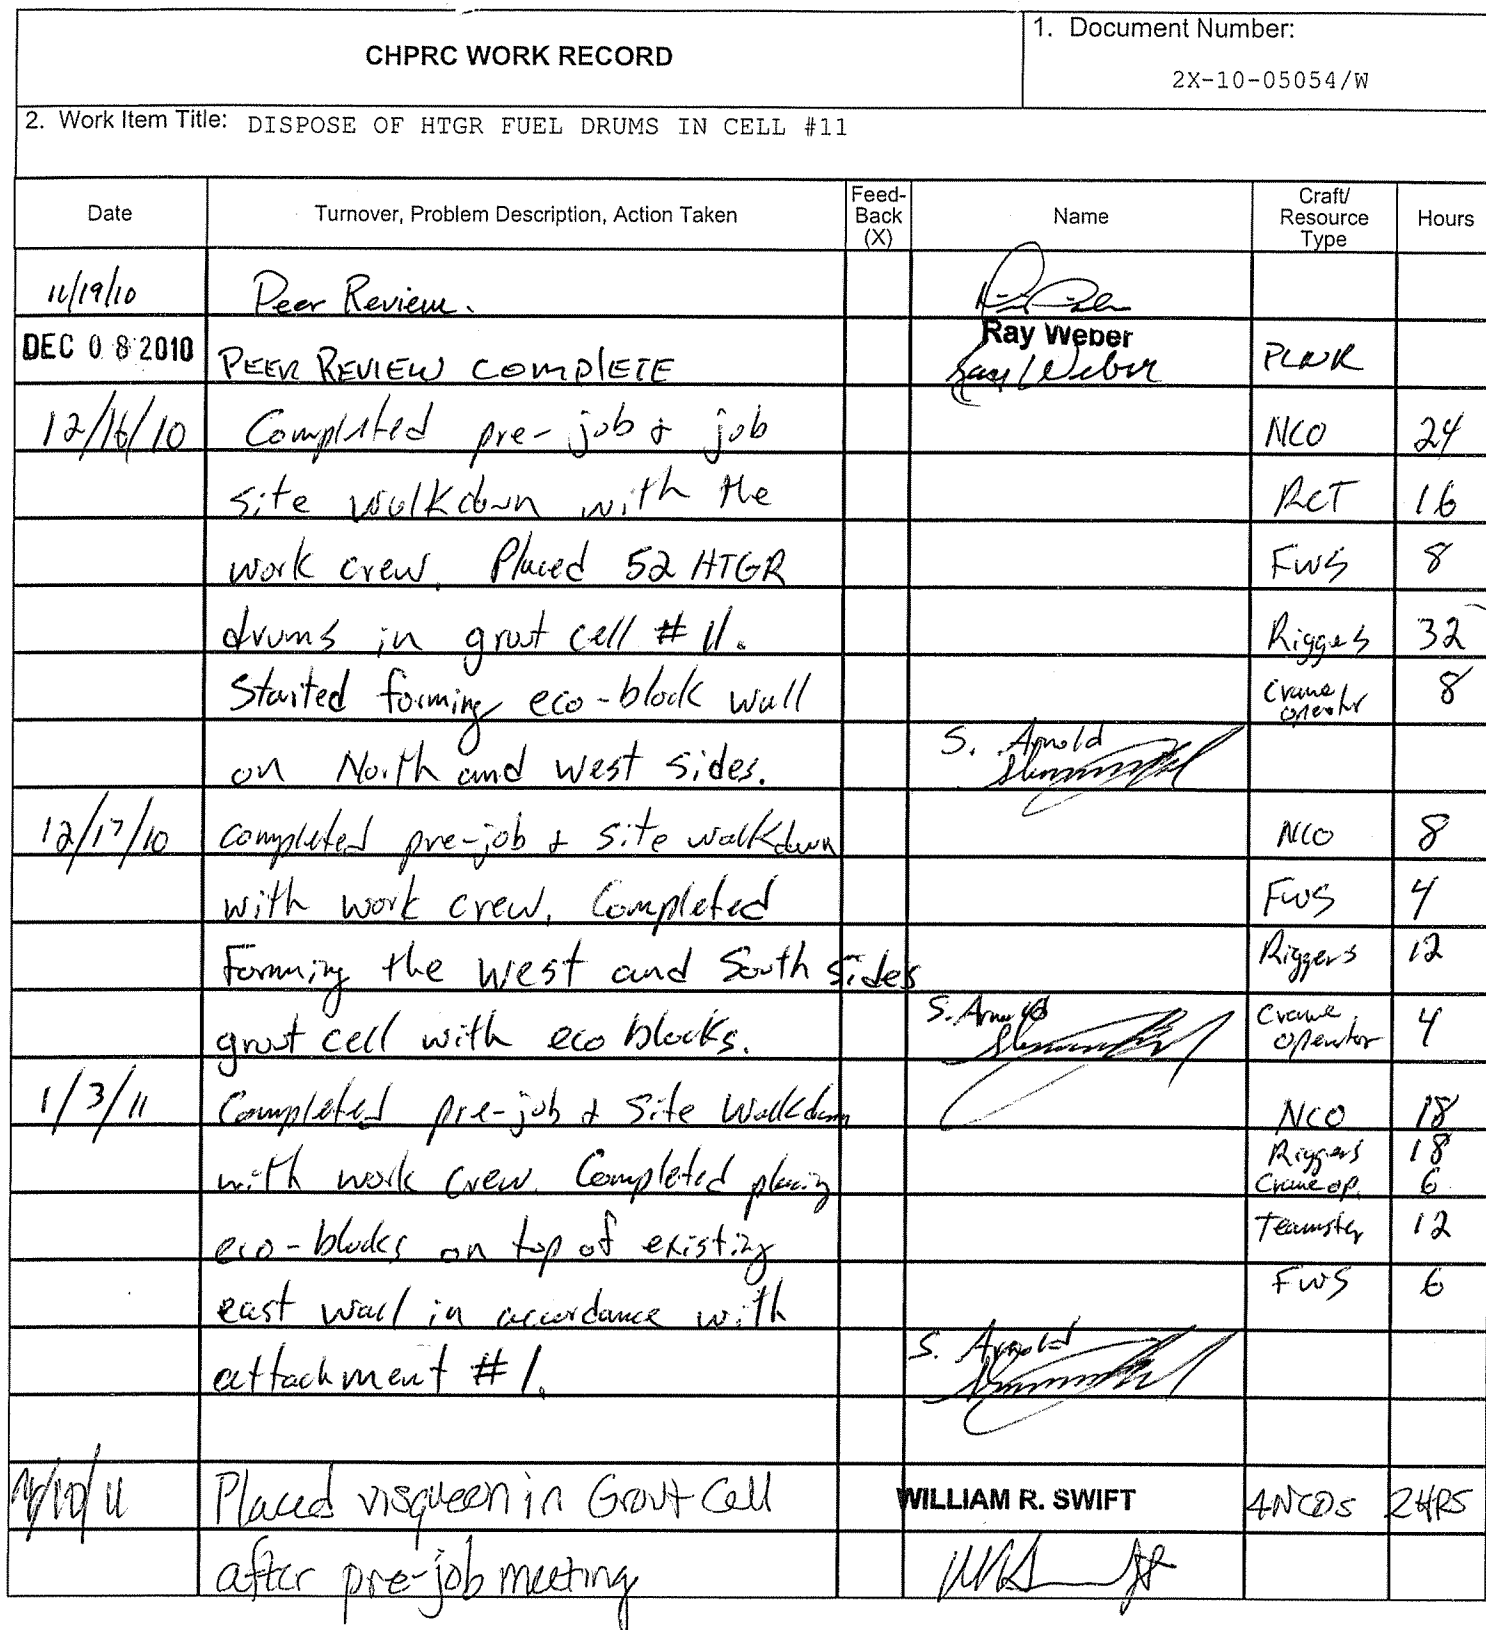 CHPRC WORK RECORD
1. Document Number:
2X-10-05054/W
2. Work Item Title: DISPOSE OF HTGR FUEL DRUMS IN CELL #11
Date
Turnover, Problem Description, Action Taken
Feed-
Back
(X)
Name
Craft/
Resource
Type
Hours
11/19/10 Peer Review.
Ray Weber
DEC 08 2010 PEER REVIEW COMPLETE Ray Weber PLNR
12/16/10 Completed pre-job & job NCO 24
site walkdown with the RCT 16
work crew. Placed 52 HTGR FWS 8
drums in grout cell #11. Riggers 32
Started forming eco-block wall Crane operator 8
on North and west sides. S. Arnold
12/17/10 completed pre-job & site walkdown NCO 8
with work crew. Completed FWS 4
Forming the west and South sides Riggers 12
grout cell with eco blocks. S. Arnold Crane operator 4
1/3/11 Completed pre-job & site walkdown NCO 18
with work crew. Completed placing Riggers 18
Crane op. 6
eco-blocks on top of existing Teamster 12
east wall in accordance with FWS 6
attachment #1. S. Arnold
/10/11 Placed visqueen in Grout Cell WILLIAM R. SWIFT 4NCOs 2HRS
after pre-job meeting